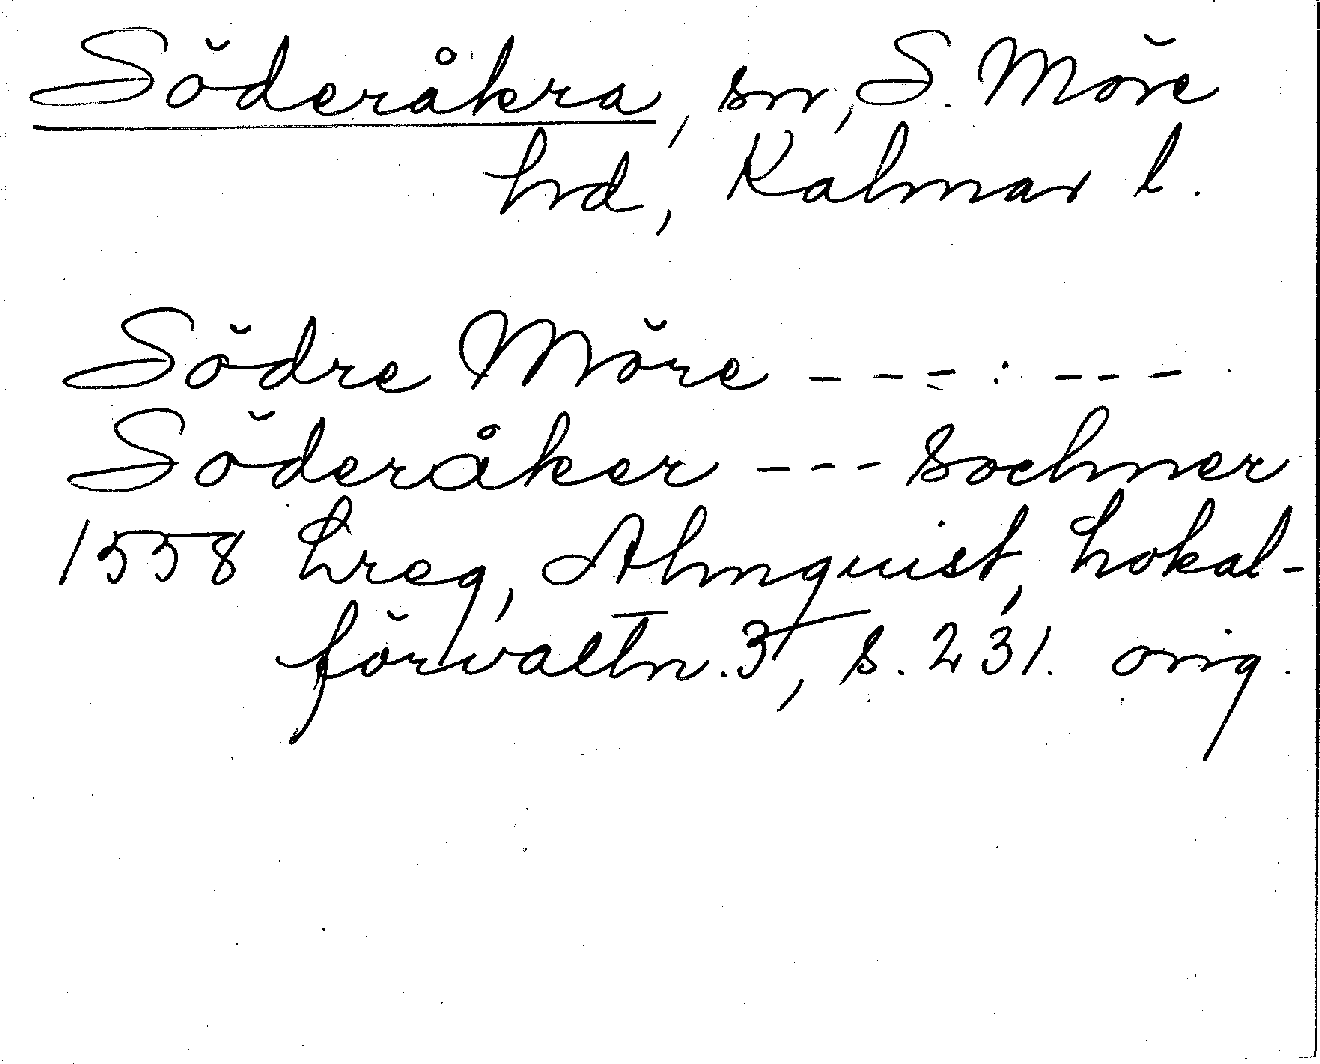 Söderåkra, sn, S. Möre
hd, Kalmar l.
Södre Möre - - - : - - -
Söderåker - - - Sochner
1558 hreg, Almquist, Lokal-
förvaltn. 3, s. 231. orig.